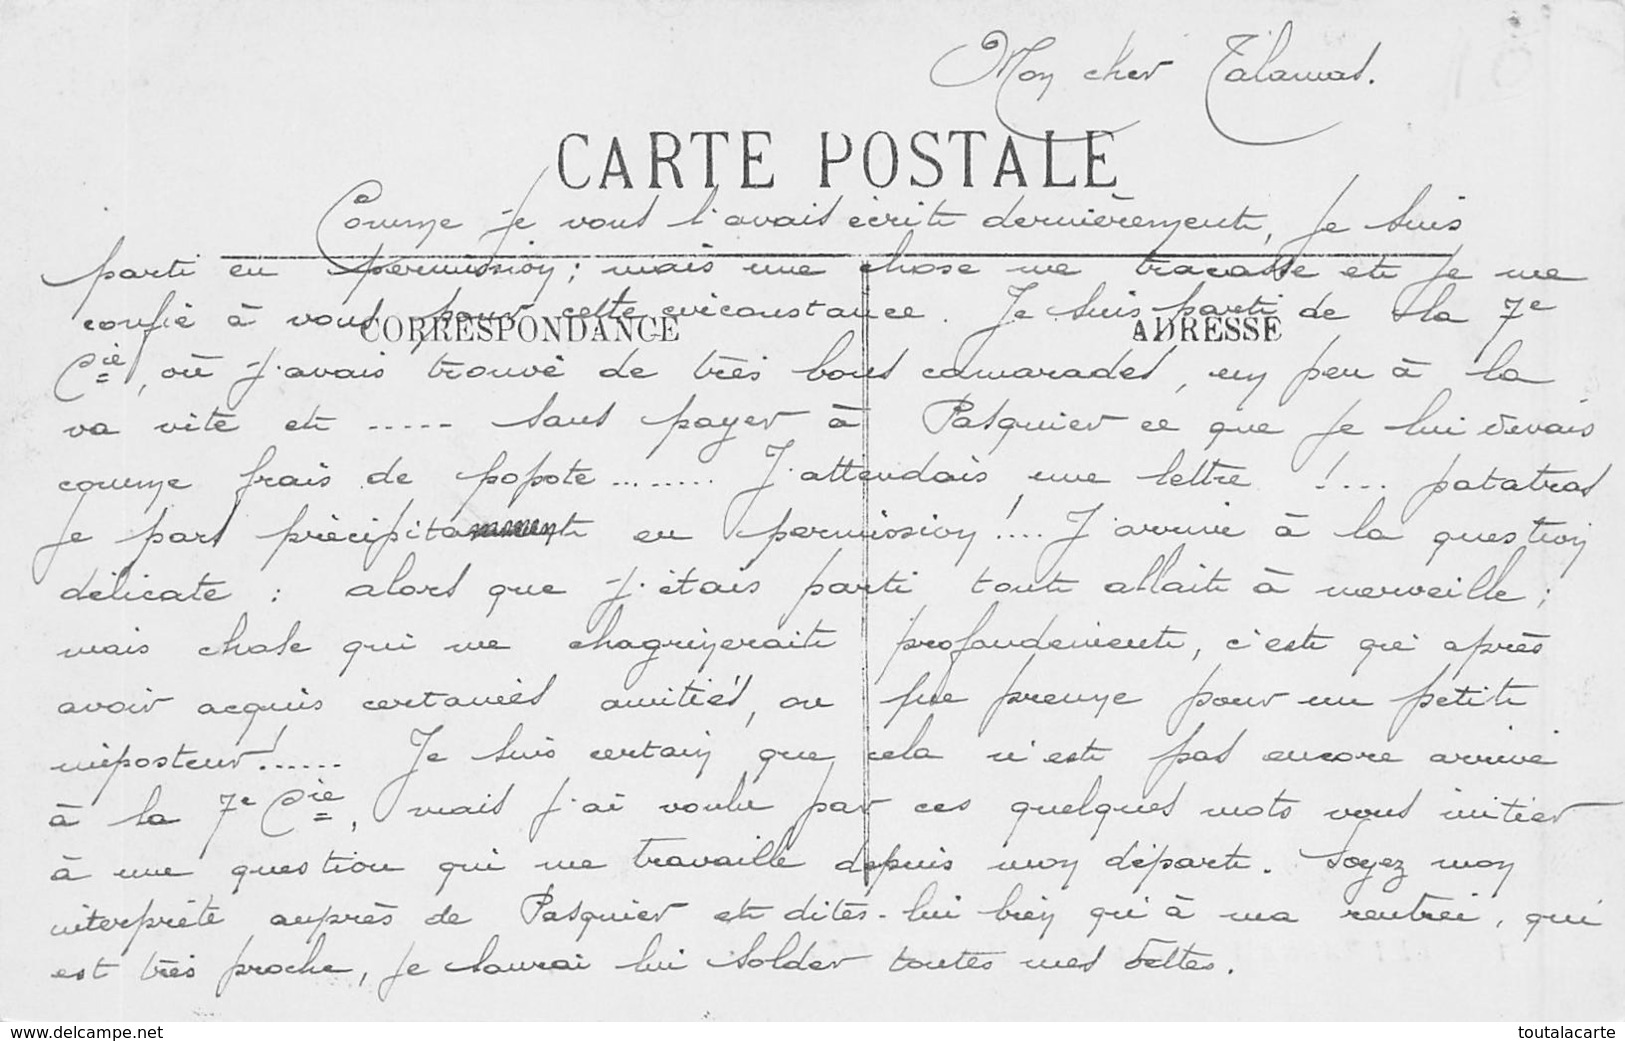 Mon cher Talamas.
CARTE POSTALE
Comme je vous l'avais écrit dernièrement, je suis
parti en permission ; mais une chose me tracasse et je me
confie à vous pour cette circonstance. Je suis parti de la 7e
CORRESPONDANCE ADRESSE
Cie, où j'avais trouvé de très bons camarades, un peu à la
va vite et ..... sans payer à Pasquier ce que je lui devais
comme frais de popote ........ J'attendais une lettre !.... patatras
je pars précipitamment en permission !.... J'arrive à la question
délicate : alors que j'étais parti tout allait à merveille ;
mais chose qui me chagrinerait profondément, c'est qu'après
avoir acquis certaines amitiés, on me prenne pour un petit
imposteur !...... Je suis certain que cela n'est pas encore arrivé
à la 7e Cie, mais j'ai voulu par ces quelques mots vous initier
à une question qui me travaille depuis mon départ. Soyez mon
interprète auprès de Pasquier et dites-lui bien qu'à ma rentrée, qui
est très proche, je saurai lui solder toutes mes dettes.
www.delcampe.net toutalacarte